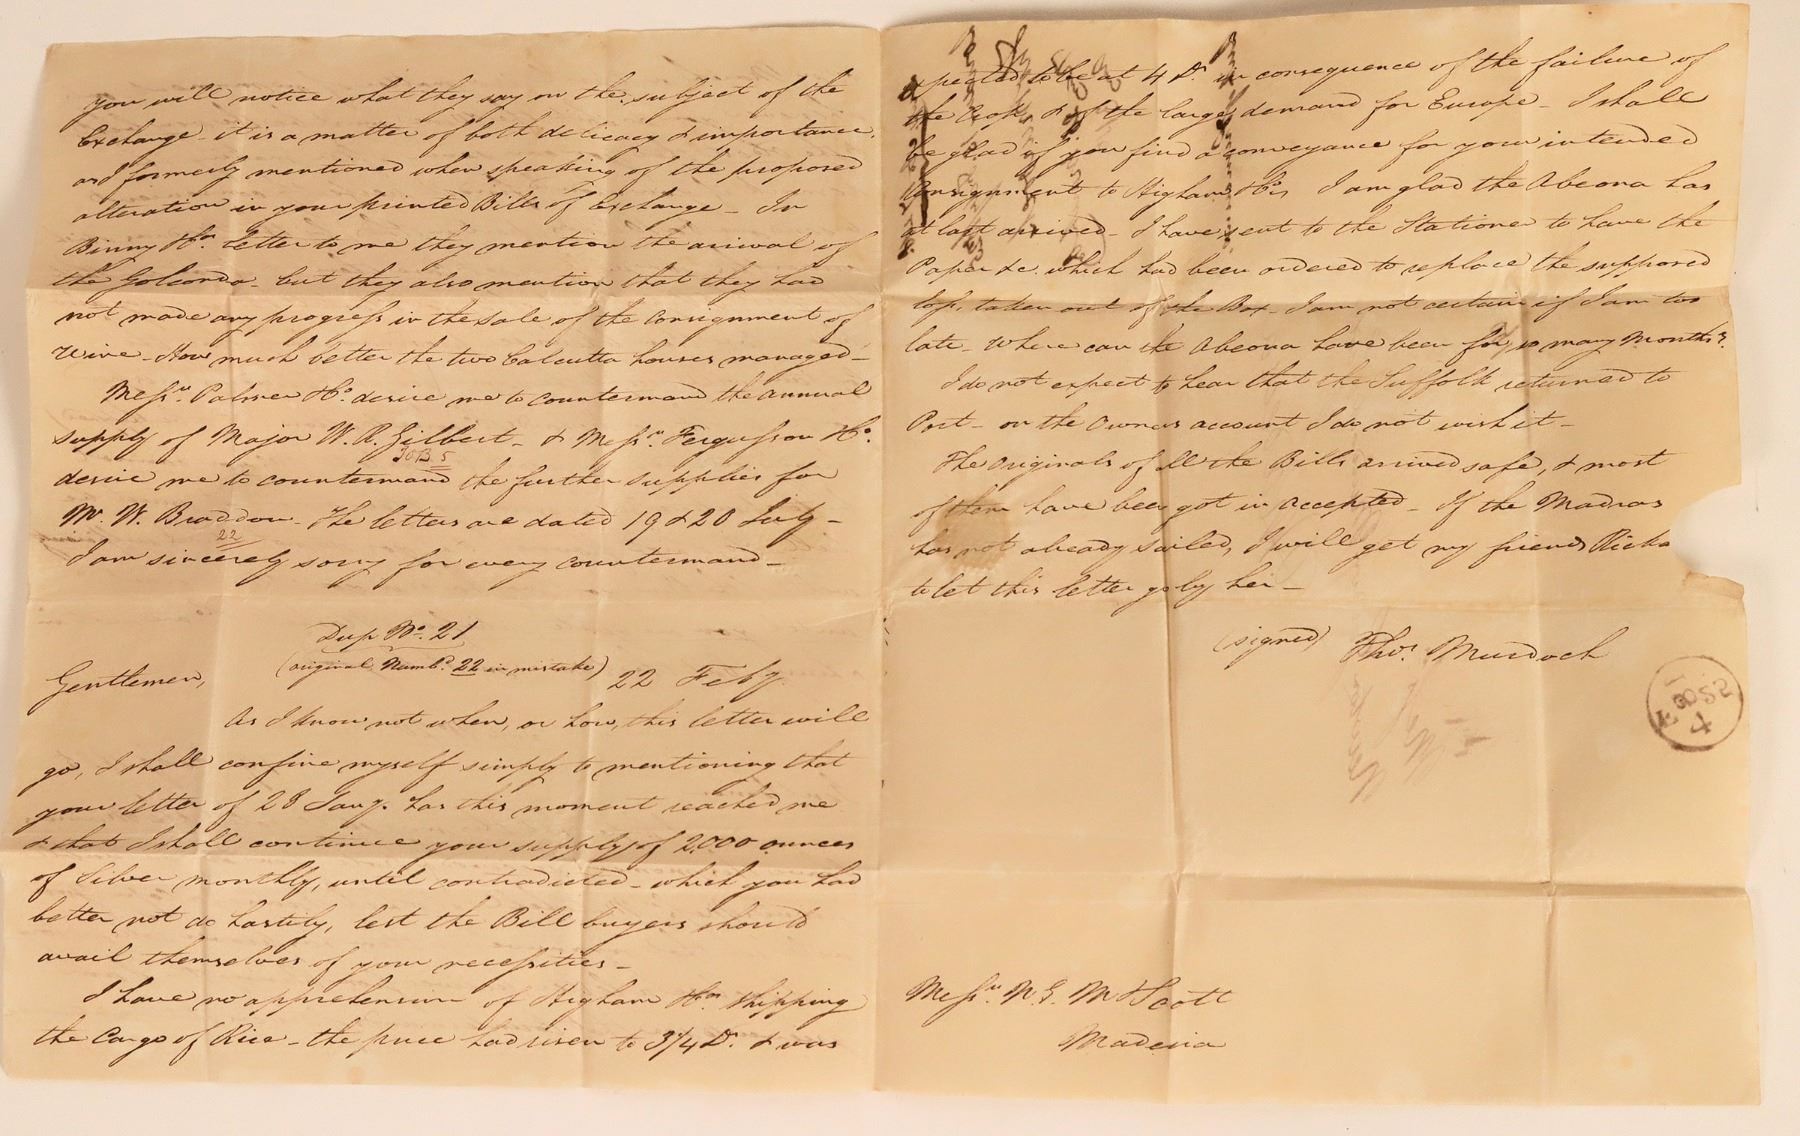 you will notice what they say on the subject of the
Exchange - it is a matter of both delicacy & importance,
as I formerly mentioned when speaking of the proposed
alteration in your printed Bills of Exchange - In
Binny & Co.s letter to me they mention the arrival of
the Golconda - but they also mention that they had
not made any progress in the sale of the consignment of
Wine - How much better the two Calcutta houses managed -
Messrs. Palmer & Co. desire me to countermand the annual
supply of Major W. R. Gilbert - & Messrs. Fergusson & Co.
desire me to countermand the further supplies for
Mr. W. Braddon - The letters are dated 19 & 20 July -
22
I am sincerely sorry for every countermand -
Dup No. 21
(original Numbd. 22 in mistake)
Gentlemen, 22 Feby.
As I know not when, or how, this letter will
go, I shall confine myself simply to mentioning that
your letter of 28 Jany. has this moment reached me
& that I shall continue your supply of 2000 ounces
of Silver monthly, until contradicted - which you had
better not do hastily, lest the Bill buyers should
avail themselves of your necessities -
I have no apprehension of Higham & Co. shipping
the Cargo of Rice - the price had risen to 3 3/4 D. & was
expected to be at 4 D. in consequence of the failure of
the Crop & of the large demand for Europe - I shall
be glad if you find a conveyance for your intended
Consignment to Higham & Co, I am glad the Abeona has
at last arrived - I have sent to the Stationer to have the
Paper &c. which had been ordered to replace the supposed
loss, taken out of the Box - I am not certain if I am too
late - Where can the Abeona have been for so many Months?
I do not expect to hear that the Suffolk returned to
Port - on the Owners account I do not wish it -
The originals of all the Bills arrived safe, & most
of them have been got in accepted - If the Madras
has not already sailed, I will get my friend
to let this letter go by her -
(signed) Thos. Murdoch
4
Messrs. N. G. M & Scott
Madeira